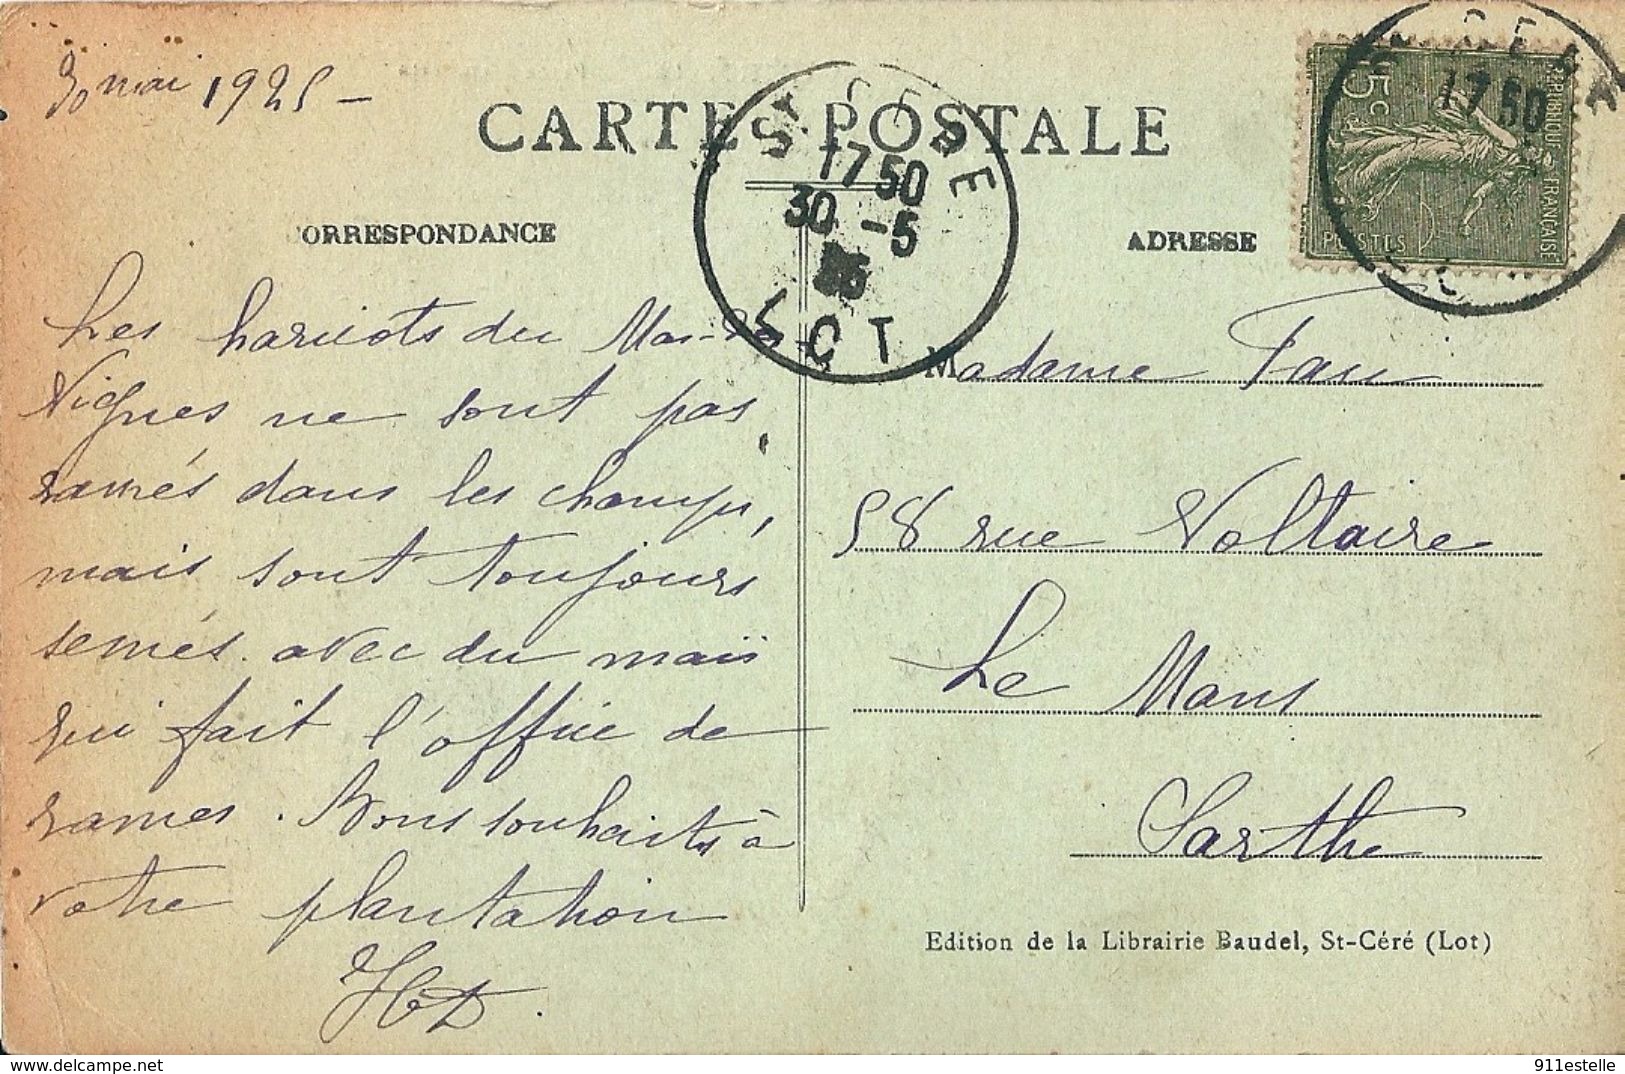 30 mai 1925 -
CARTE POSTALE
CORRESPONDANCE
ADRESSE
ST CERE
17 50
30 -5
25
LOT
17 50
REPUBLIQUE FRANÇAISE
15c
POSTES
Les haricots du Mas-de
Vignes ne sont pas
ramés dans les champs,
mais sont toujours
semés avec du maïs
qui fait l'office de
rames. Bons souhaits à
votre plantation
Madame
58 rue Voltaire
Le Mans
Sarthe
Edition de la Librairie Baudel, St-Céré (Lot)
delcampe.net
911estelle